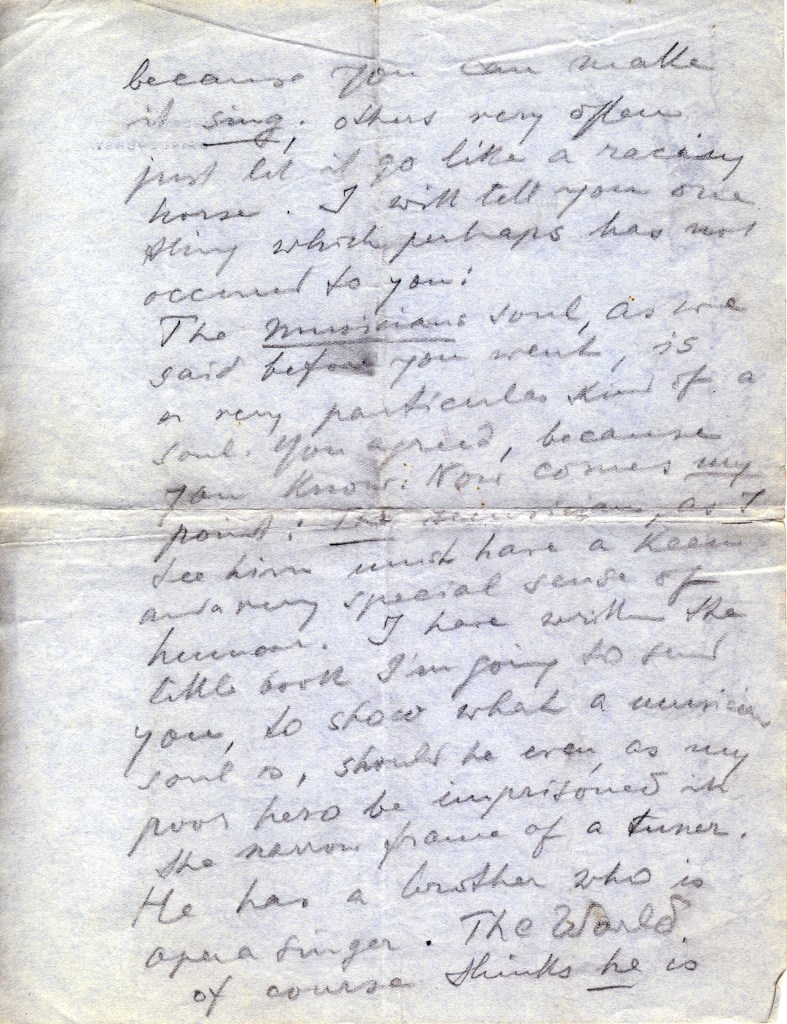 because you can make
it sing; others very often
just let it go like a racing
horse. I will tell you one
thing which perhaps has not
occured to you:
The musicians soul, as we
said before you went, is
a very particular kind of a
soul. You agreed, because
you know. Now comes my
point: The musician, as I
see him must have a keen
and a very special sense of
humour. I have written the
little book I'm going to send
you, to show what a musician
soul is, should he even, as my
poor hero be imprisoned in
the narrow frame of a tuner.
He has a brother who is
opera singer. The World
of course thinks he is